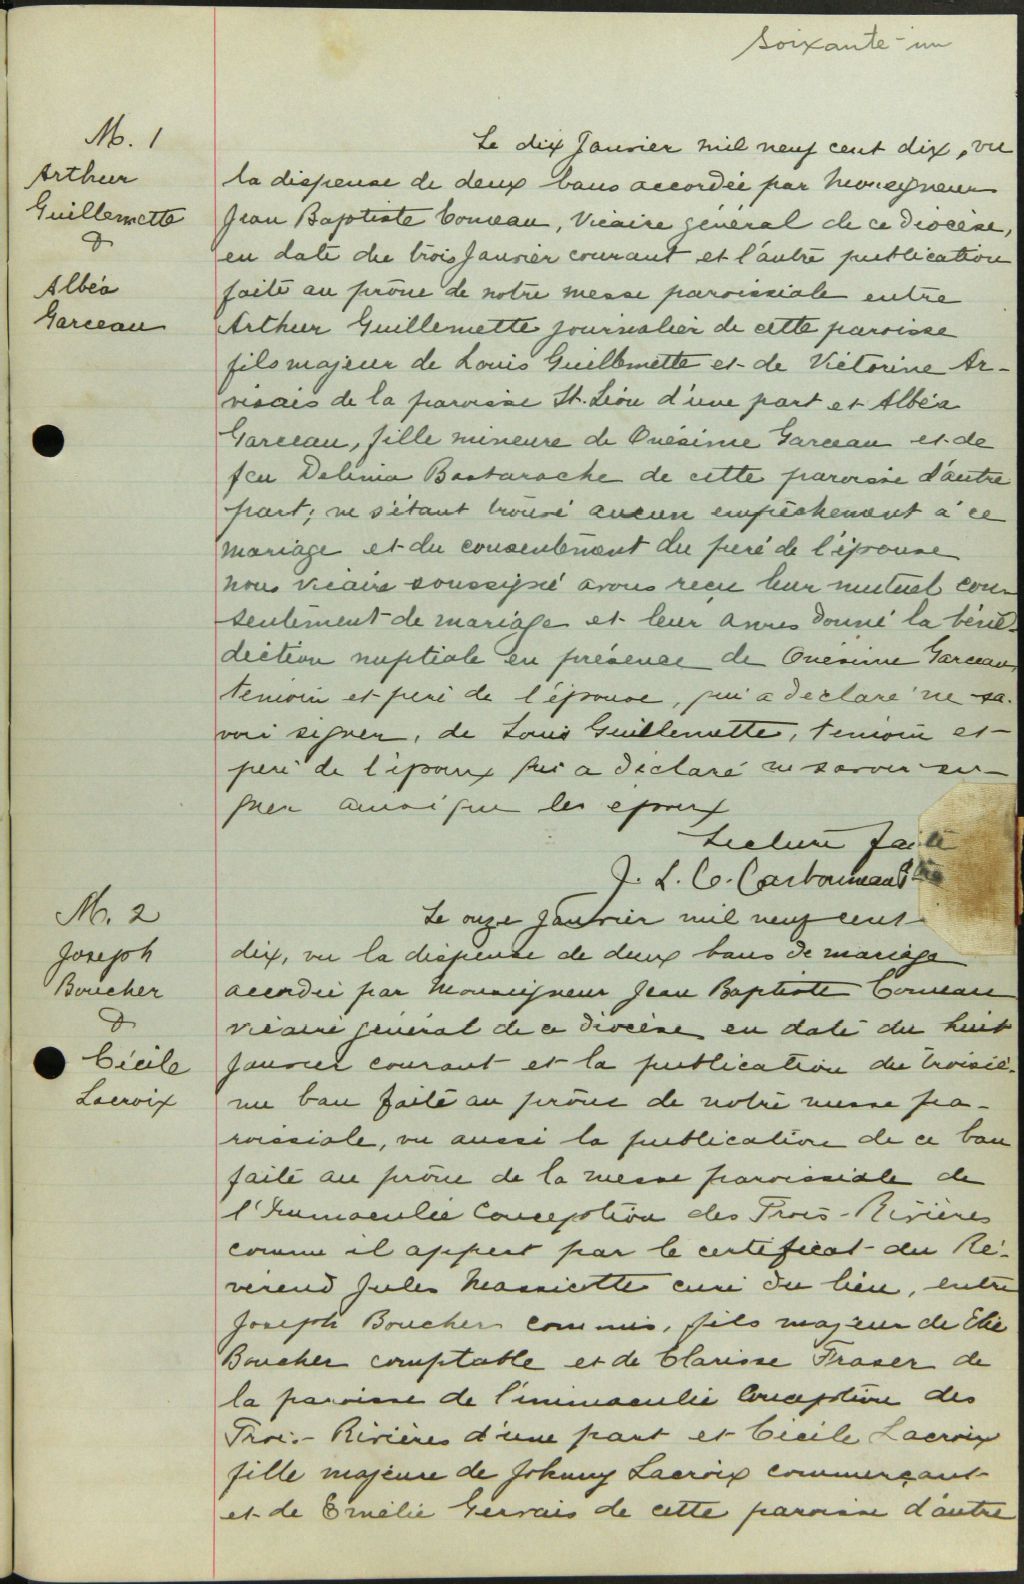 Soixante-un
M. 1
Arthur
Guillemette
&
Albéa
Garceau
Le dix Janvier mil neuf cent dix, vu
la dispense de deux bans accordée par Monseigneur
Jean Baptiste Comeau, Vicaire général de ce Diocèse,
en date du trois Janvier courant et l'autre publication
faite au prône de notre messe paroissiale entre
Arthur Guillemette journalier de cette paroisse
fils majeur de Louis Guillemette et de Victorine Ar-
visais de la paroisse St. Léon d'une part et Albéa
Garceau, fille mineure de Onésime Garceau et de
feu Delima Bastarache de cette paroisse d'autre
part; ne s'étant trouvé aucun empêchement à ce
mariage et du consentement du père de l'épouse
nous vicaire soussigné avons reçu leur mutuel con-
sentement de mariage et leur avons donné la béné-
diction nuptiale en présence de Onésime Garceau,
temoin et père de l'épouse, qui a declaré ne sa-
voir signer, de Louis Guillemette, temoin et
père de l'époux qui a déclaré ne savoir si-
gner ainsi que les époux
Lecture faite
J. L. C. Carbonneau Ptre
M. 2
Joseph
Boucher
&
Cécile
Lacroix
Le onze Janvier mil neuf cent
dix, vu la dispense de deux bans de mariage
accordée par Monseigneur Jean Baptiste Comeau
vicaire général de ce diocèse en date du huit
Janvier courant et la publication du troisiè-
me ban faite au prône de notre messe pa-
roissiale, vu aussi la publication de ce ban
faite au prône de la messe paroissiale de
l'Immaculée Conception des Trois-Rivières
comme il appert par le certificat du Ré-
vérend Jules Massicotte curé du lieu, entre
Joseph Boucher commis, fils majeur de Elie
Boucher comptable et de Clarisse Fraser de
la paroisse de l'immaculée Conception des
Trois-Rivières d'une part et Cécile Lacroix
fille majeure de Johnny Lacroix commerçant
et de Emélie Gervais de cette paroisse d'autre